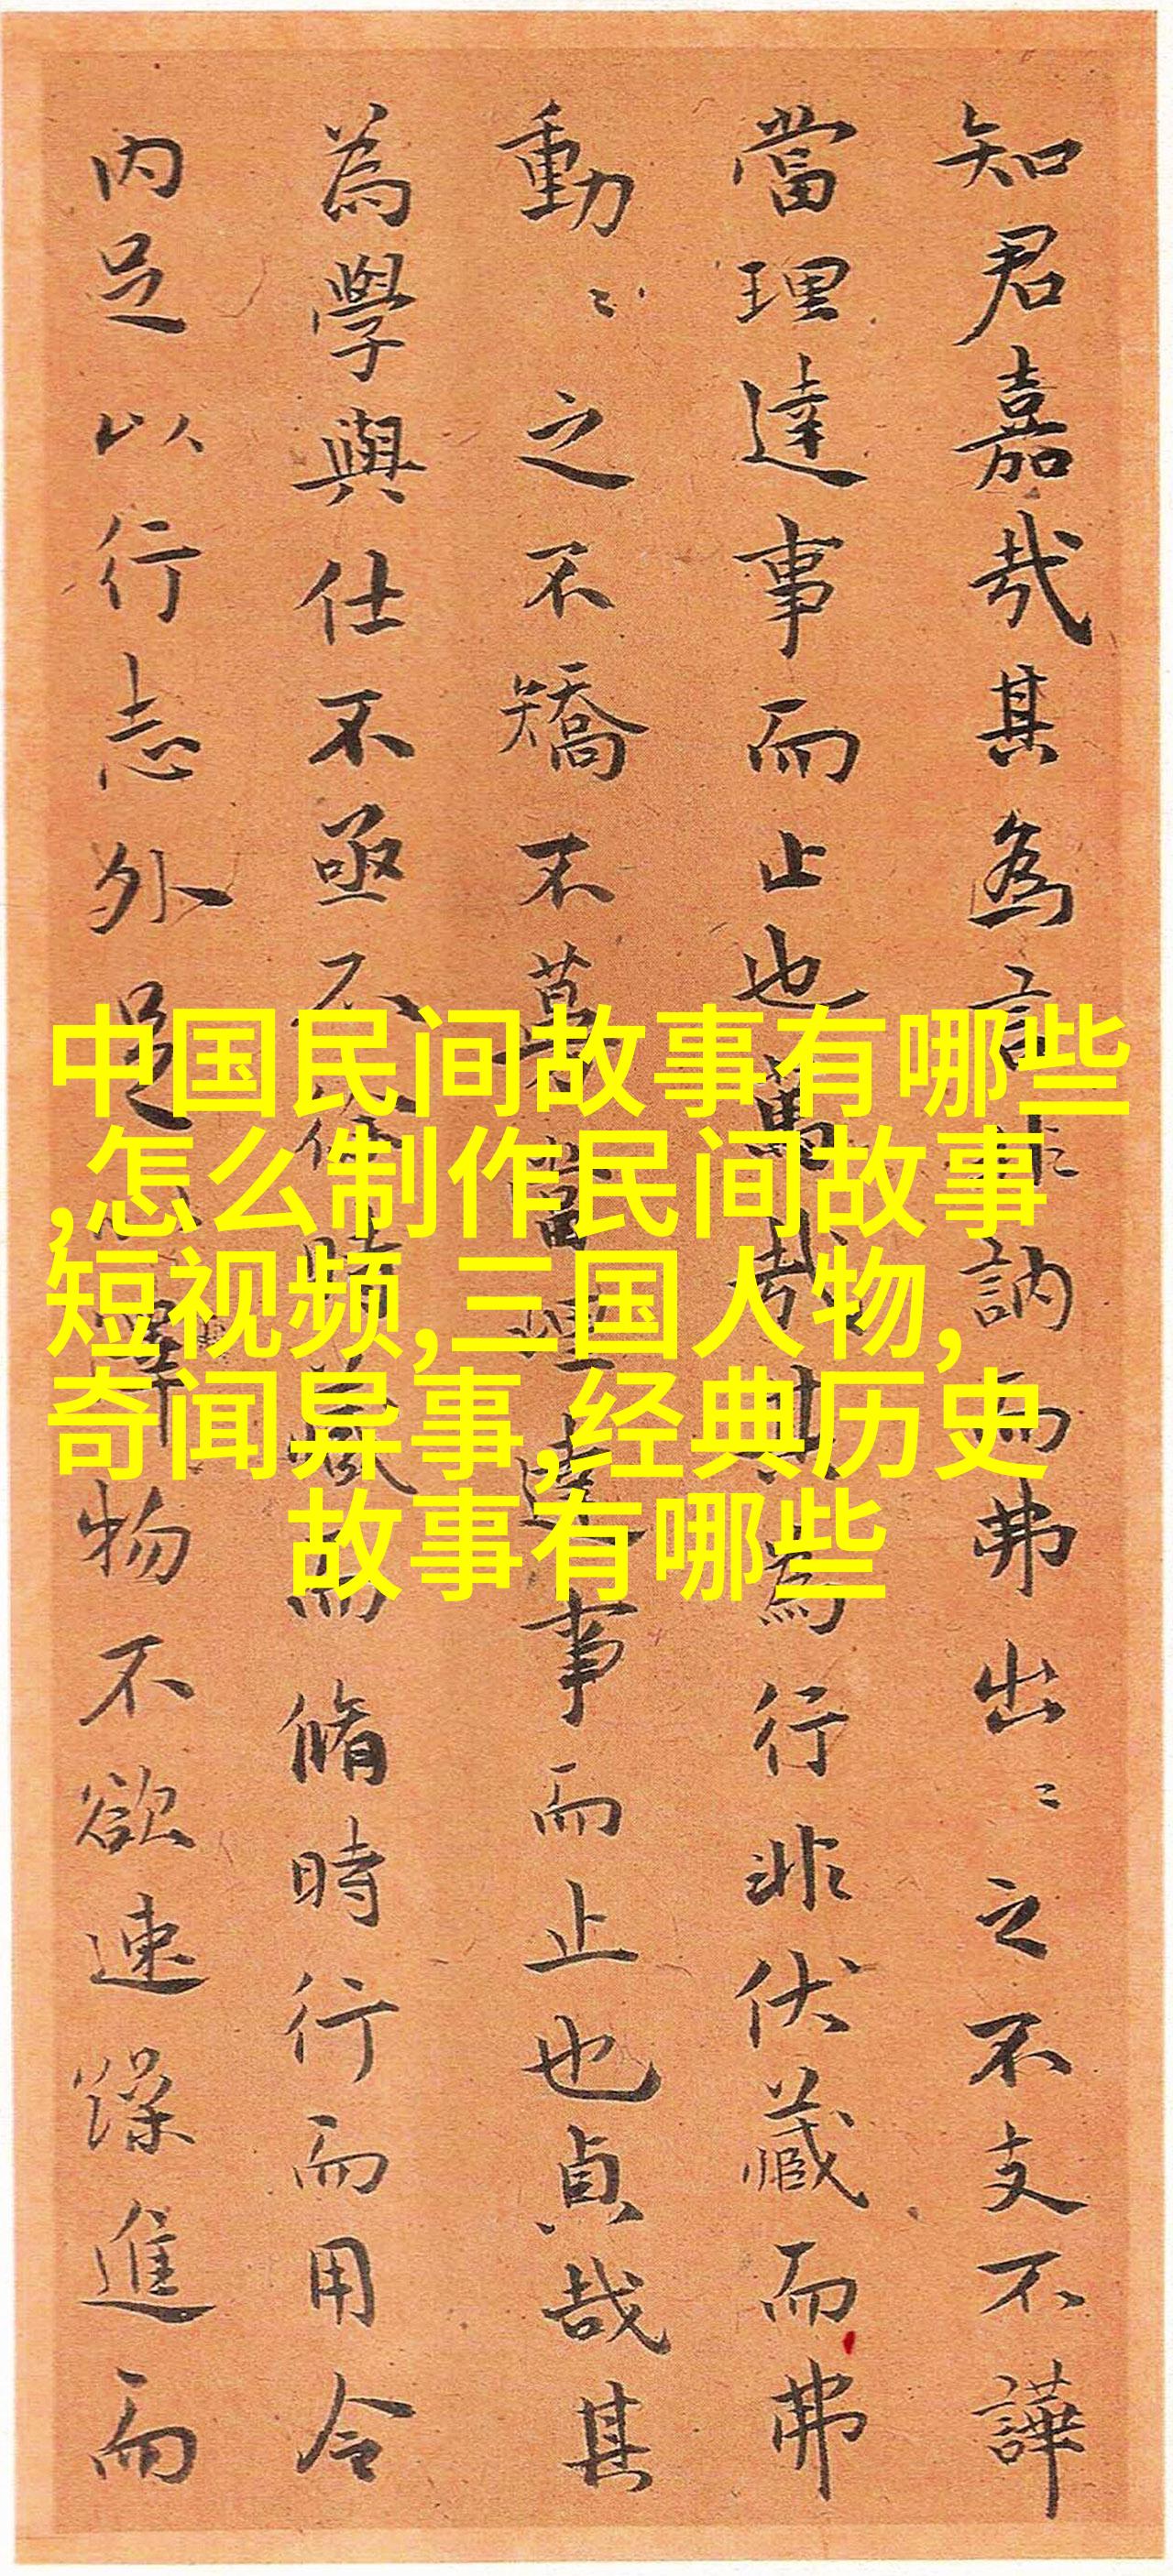 知君嘉哉其為言非訥而弗出〻之不支不譁
當理達事而止也哉其為行非伏藏而弗
動〻之不矯不慕當理達事而止也貞哉其
為學與仕不亟不徐時藏而脩時行而用令
内足以行志外足以澤物不欲速躁進而
中国民间故事有哪些
,怎么制作民间故事
短视频,三国人物,
奇闻异事,经典历史
故事有哪些